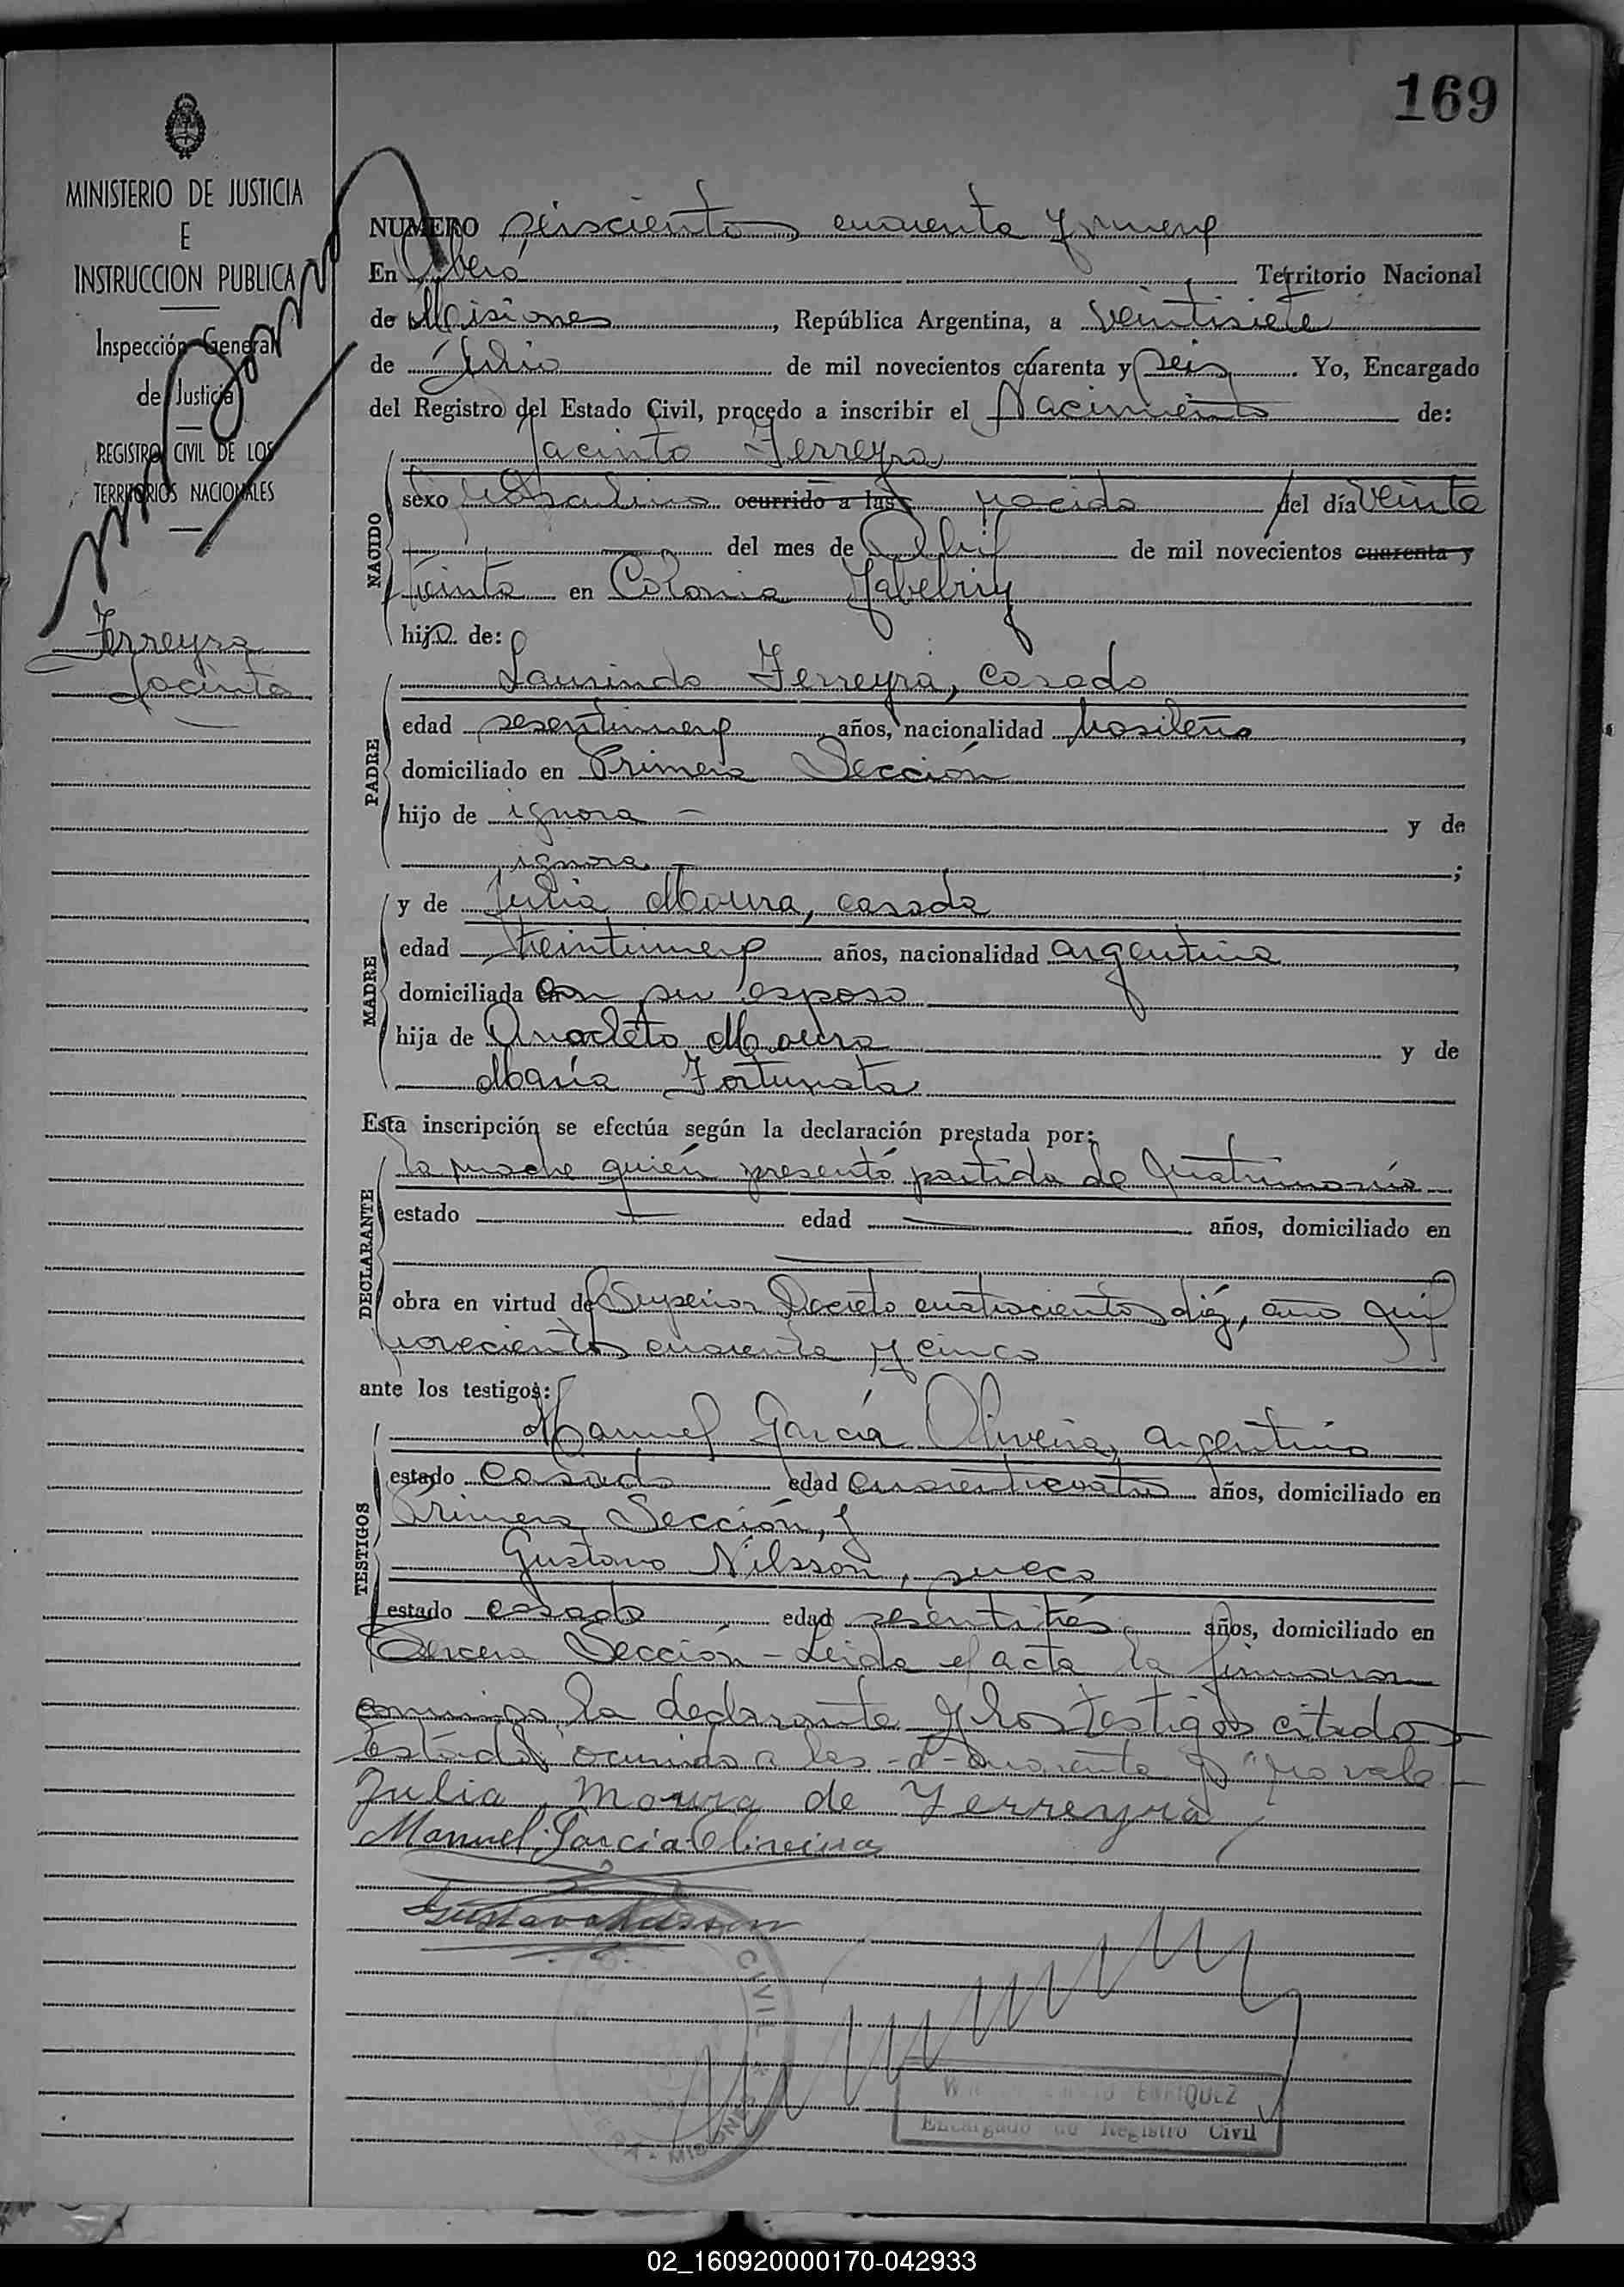 169
MINISTERIO DE JUSTICIA
E
INSTRUCCION PUBLICA
Inspección General
de Justicia
REGISTRO CIVIL DE LOS
TERRITORIOS NACIONALES
Ferreyra
Jacinto
NUMERO seiscientos cuarenta y nueve
En Oberá Territorio Nacional
de Misiones, República Argentina, a veintisiete
de Julio de mil novecientos cuarenta y seis. Yo, Encargado
del Registro del Estado Civil, procedo a inscribir el Nacimiento de:
Jacinto Ferreyra
NACIDO
sexo Masculino ocurrido a las nacido del día veinte
del mes de Abril de mil novecientos cuarenta y
treinta en Colonia Yabebiry
hijo de:
PADRE
Laurindo Ferreyra, casado
edad sesentinueve años, nacionalidad brasileño,
domiciliado en Primera Sección
hijo de ignora - y de
ignora - ;
MADRE
y de Julia Moura, casada
edad treintinueve años, nacionalidad argentina,
domiciliada con su esposo
hija de Anacleto Moura y de
María Fortunata
Esta inscripción se efectúa según la declaración prestada por:
DECLARANTE
la madre quién presentó partida de matrimonio
estado edad años, domiciliado en
obra en virtud de Superior Decreto cuatrocientos diez, año mil
novecientos cuarenta y cinco
ante los testigos:
TESTIGOS
Manuel García Oliveira, argentino
estado casado edad cuarenticuatro años, domiciliado en
Primera Sección, y
Gustavo Nilsson, sueco
estado casado edad sesentitrés años, domiciliado en
Tercera Sección - Leída el acta la firmaron
conmigo la declarante y los testigos citados
Testado "ocurrido a las -a- cuarenta y" no vale -
Julia Moura de Ferreyra
Manuel García Oliveira
Gustavo Nilsson
CIVIL * MISIONES
ENRIQUEZ
Encargado de Registro Civil
02_160920000170-042933